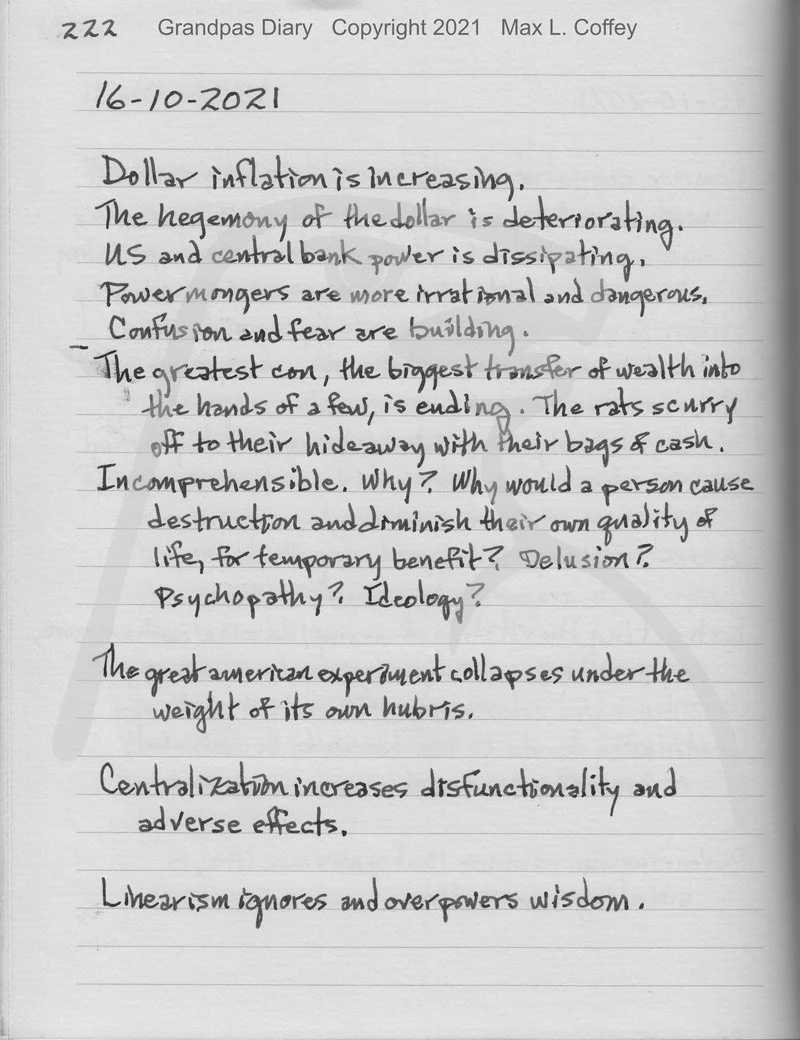 222 Grandpas Diary Copyright 2021 Max L. Coffey
16-10-2021
Dollar inflation is increasing.
The hegemony of the dollar is deteriorating.
US and central bank power is dissipating.
Power mongers are more irrational and dangerous.
Confusion and fear are building.
The greatest con, the biggest transfer of wealth into
the hands of a few, is ending. The rats scurry
off to their hideaway with their bags & cash.
Incomprehensible. Why? Why would a person cause
destruction and diminish their own quality of
life, for temporary benefit? Delusion?
Psychopathy? Ideology?
The great american experiment collapses under the
weight of its own hubris.
Centralization increases disfunctionality and
adverse effects.
Linearism ignores and overpowers wisdom.